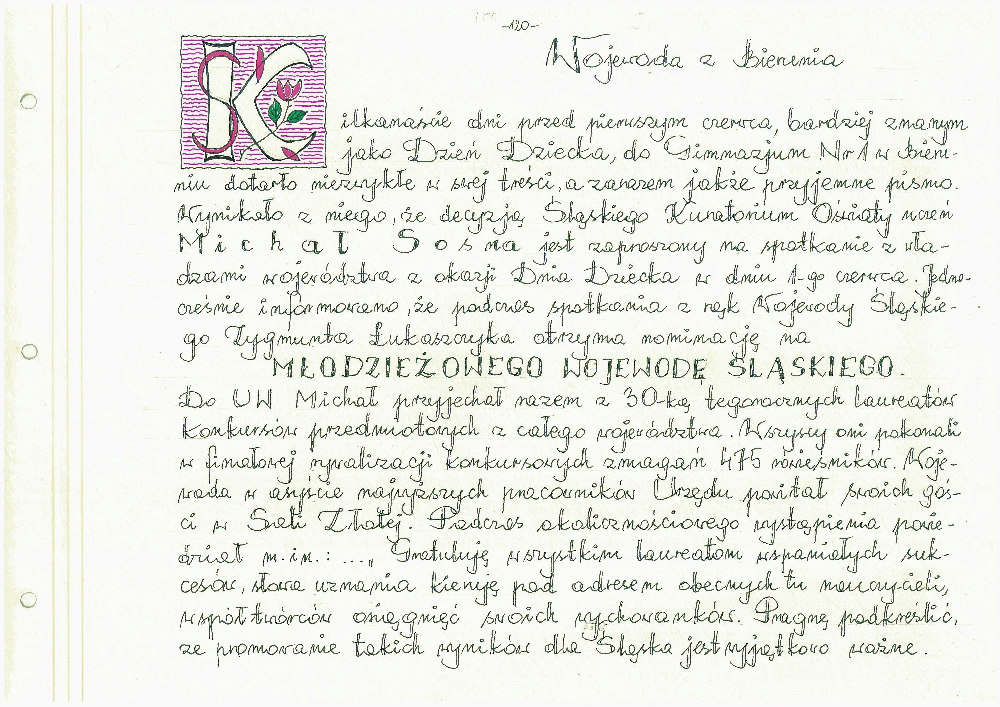 -120-
Wojewoda z Bierunia
Kilkanaście dni przed pierwszym czerwca, bardziej znanym
jako Dzień Dziecka, do Gimnazjum Nr 1 w Bieru-
niu dotarło niezwykłe w swej treści, a zarazem jakże przyjemne pismo.
Wynikało z niego, że decyzją Śląskiego Kuratorium Oświaty uczeń
Michał Sosna jest zaproszony na spotkanie z wła-
dzami województwa z okazji Dnia Dziecka w dniu 1-go czerwca. Jedno-
cześnie informowano, że podczas spotkania z rąk Wojewody Śląskie-
go Zygmunta Łukaszczyka otrzyma nominację na
MŁODZIEŻOWEGO WOJEWODĘ ŚLĄSKIEGO.
Do UW Michał przyjechał razem z 30-ką tegorocznych laureatów
konkursów przedmiotowych z całego województwa. Wszyscy oni pokonali
w finałowej rywalizacji konkursowych zmagań 475 rówieśników. Woje-
woda w asyście najwyższych pracowników Urzędu powitał swoich goś-
ci w Sali Złotej. Podczas okolicznościowego wystąpienia powie-
dział m.in.: ...„ Gratuluję wszystkim laureatom wspaniałych suk-
cesów, słowa uznania kieruję pod adresem obecnych tu nauczycieli,
współtwórców osiągnięć swoich wychowanków. Pragnę podkreślić,
że promowanie takich wyników dla Śląska jest wyjątkowo ważne.